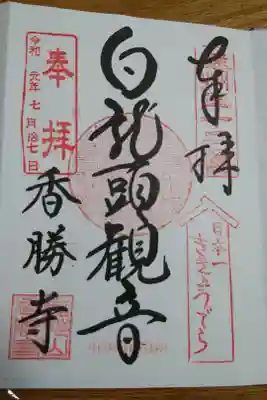 奉拝
日本一
ききょうでら
白龍頭観音
奉拝
令和元年七月拾七日
香勝寺